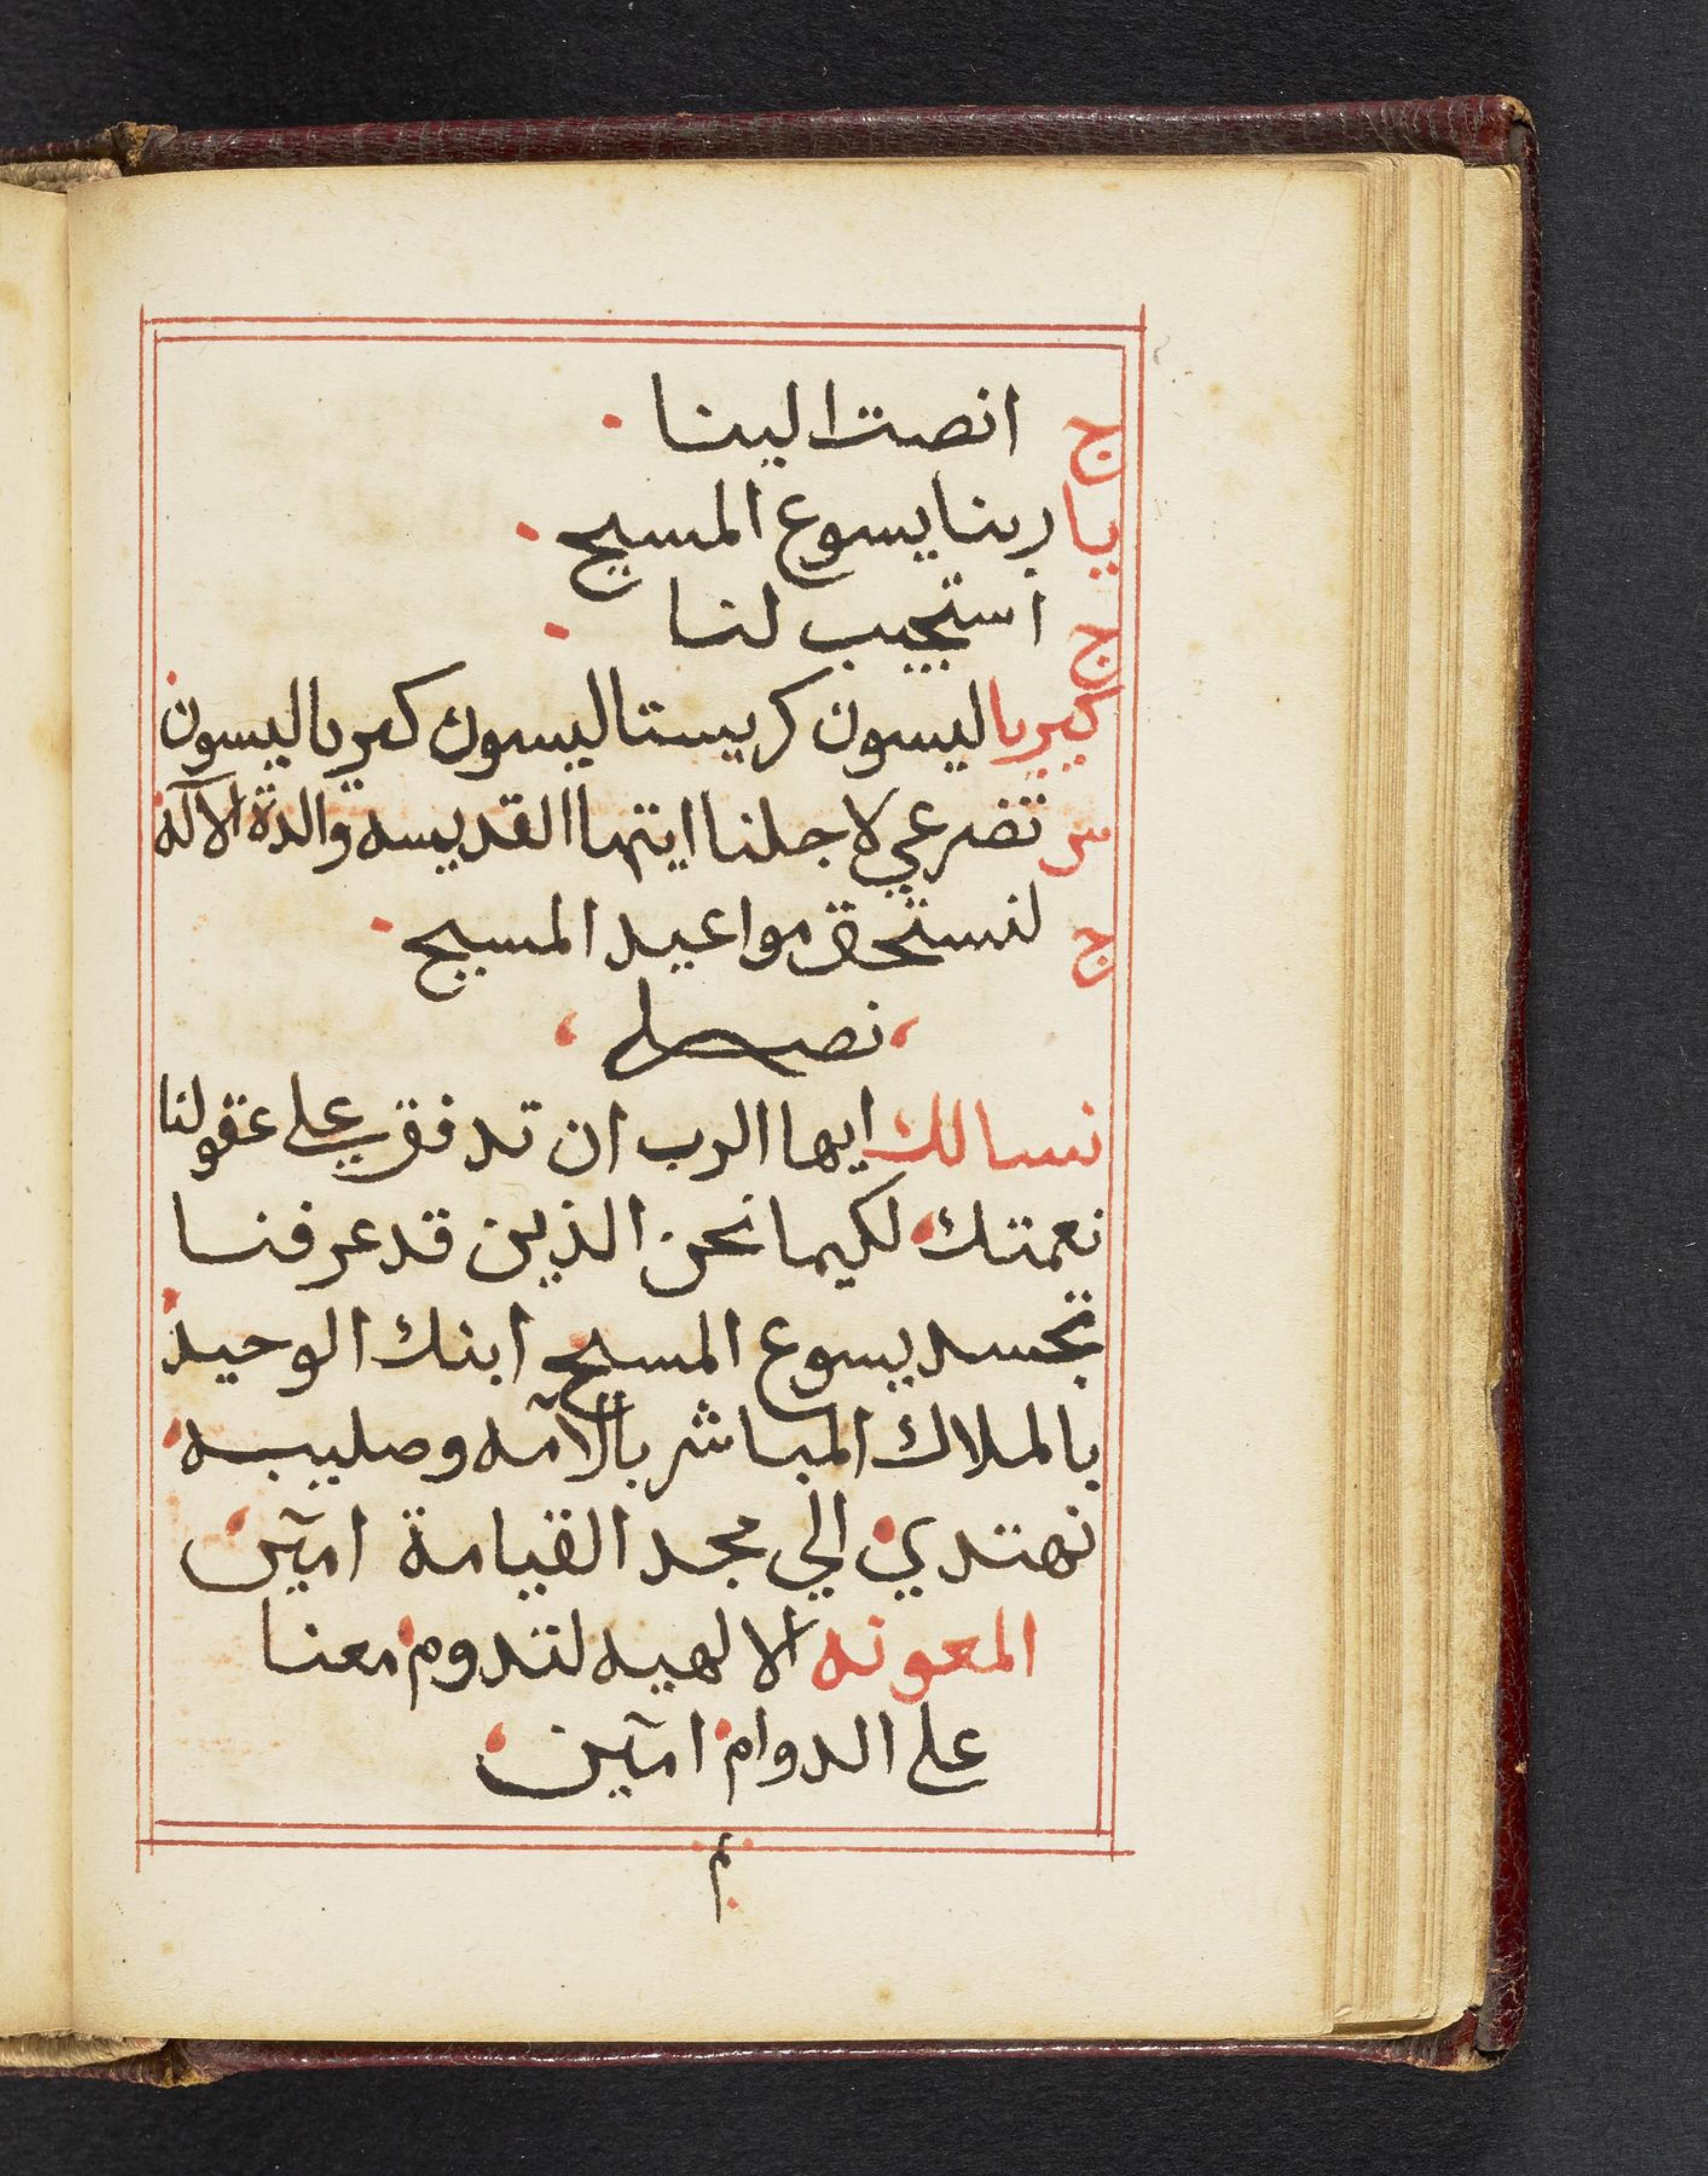 ج انصت الينا
يا ربنا يسوع المسيح
ج استجيب لنا
كيريا ليسون كريستا ليسون كيريا ليسون
س تضرعي لاجلنا ايتها القديسه والدة الآله
ج لنستحق مواعيد المسيح
نصلي
نسالك ايها الرب ان تدفق علي عقولنا
نعمتك لكيما نحن الذين قد عرفنا
تجسد يسوع المسيح ابنك الوحيد
بالملاك المباشر بالآمه وصليبه
نهتدي الي مجد القيامة امين
المعونه الالهيه لتدوم معنا
علي الدوام امين
م